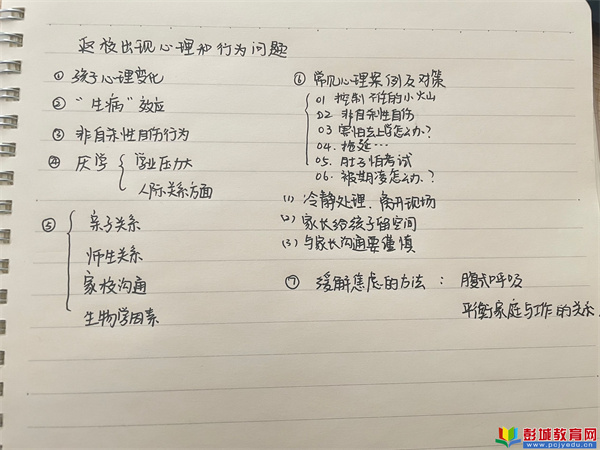 返校出现心理和行为问题
① 孩子心理变化
② “生病”效应
③ 非自杀性自伤行为
④ 厌学 { 学业压力大
人际关系方面
⑤ { 亲子关系
师生关系
家校沟通
生物学因素
⑥ 常见心理案例及对策
01 控制不住的小火山
02 非自杀性自伤
03 害怕去上学怎么办？
04. 拖延…
05. 肚子怕考试
06. 被期凌怎么办？
(1) 冷静处理、离开现场
(2) 家长给孩子留空间
(3) 与家长沟通要谨慎
⑦ 缓解焦虑的方法： 腹式呼吸
平衡家庭与工作的关系
彭城教育网
www.pcjyedu.cn